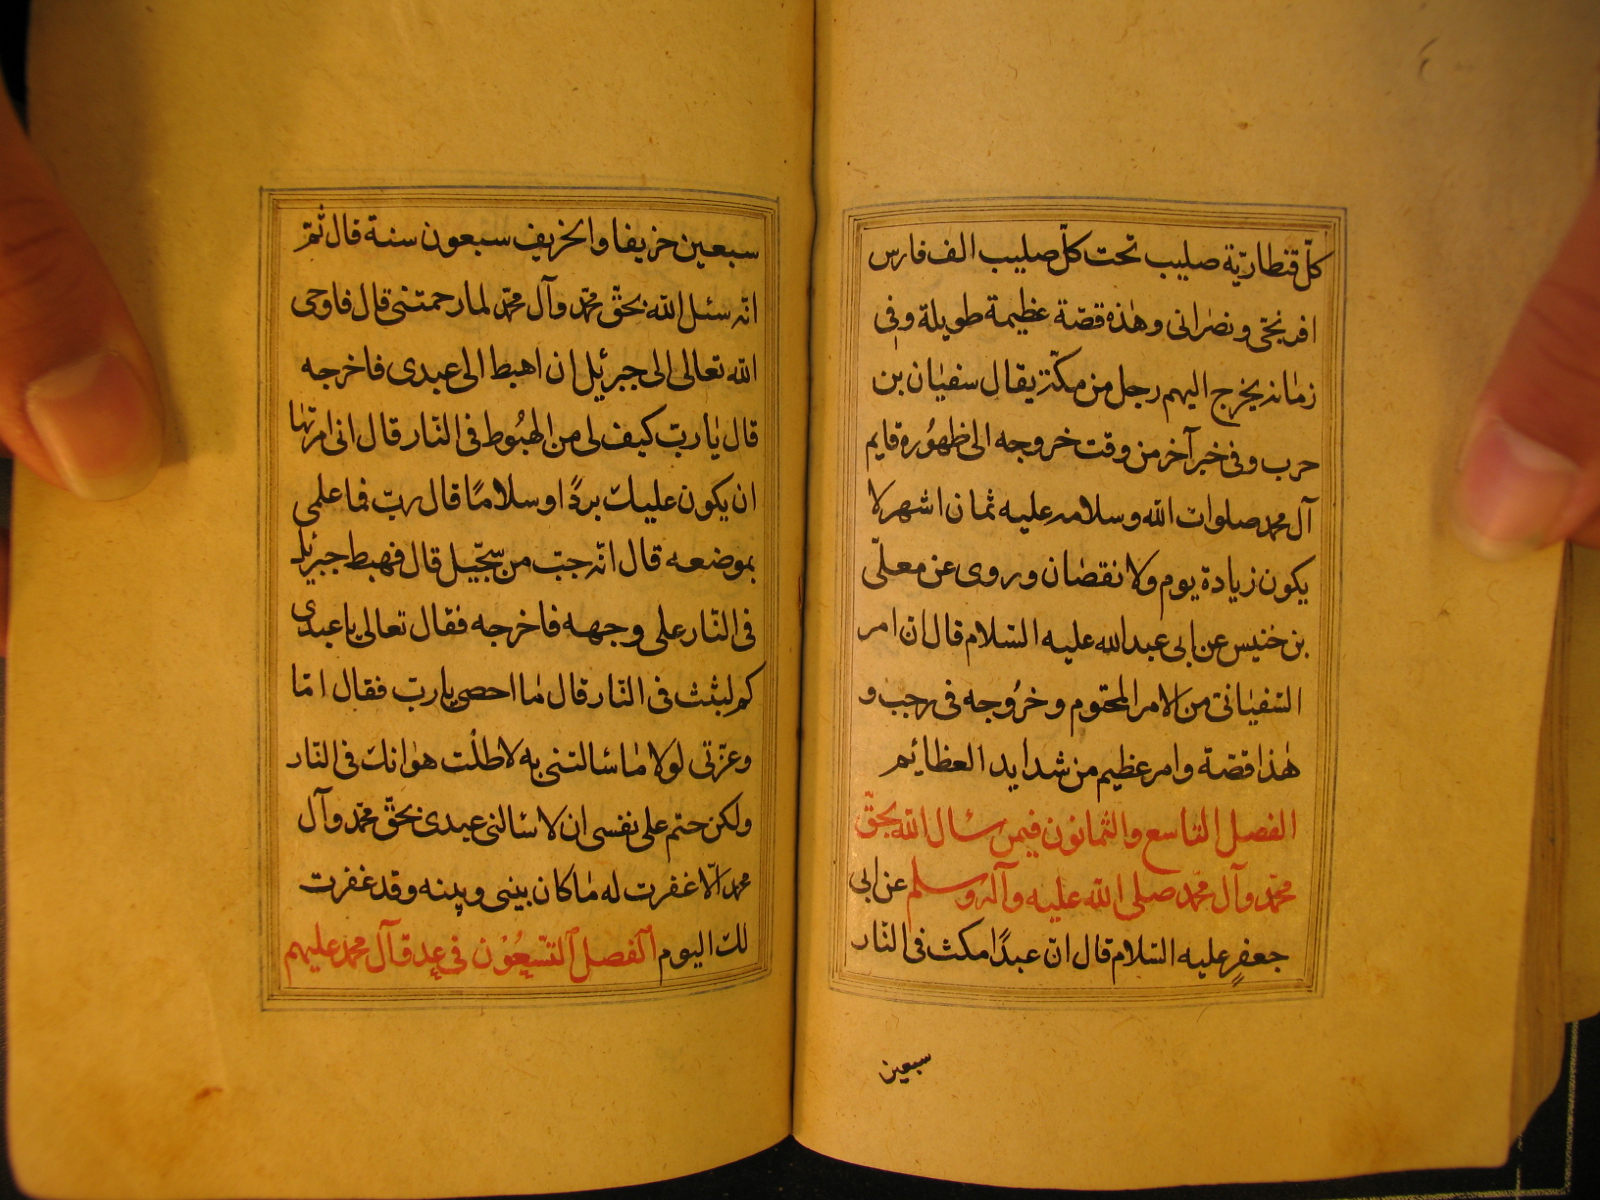 كلّ قنطاريّة صليب تحت كلّ صليب الف فارس
افرنجى و نصرانى و هذه قصّة عظيمة طويلة و فى
زمانه يخرج اليهم رجل من مكّة يقال سفيان بن
حرب و فى خبر آخر من وقت خروجه الى ظهوره قايم
آل محمد صلوات الله و سلامه عليه ثمان اشهر لا
يكون زيادة يوم و لا نقصان و روى عن معلّى
بن خنيس عن ابى عبد الله عليه السّلام قال ان امر
السّفيانى من الامر المحتوم و خروجه فى رجب و
هذا قصة و امر عظيم من شدايد العظائم
الفصل التاسع والثمانون فيمن سئال الله بحقّ
محمّد و آل محمّد صلى الله عليه و آله و سلم عن ابى
جعفرٍ عليه السّلام قال انّ عبدًا مكث فى النّار
سبعين
سبعين خريفا و الخريف سبعون سنة قال ثمّ
انّه سئل الله بحقّ محمّد و آل محمّد لما رحمتنى قال فاوحى
الله تعالى الى جبرئيل ان اهبط الى عبدى فاخرجه
قال يا ربّ كيف لى من الهبوط فى النّار قال انى امرتها
ان يكون عليك بردًا و سلامًا قال ربّ فما علمى
بموضعه قال انّه جبّ من سجّيل قال فهبط جبرئيل
فى النّار على وجهه فاخرجه فقال تعالى يا عبدى
كم لبثت فى النّار قال ما احصى يا ربّ فقال امّا
و عزّتى لولا ما سئالتنى به لاطلت هوانك فى النّار
ولكن حتم على نفسى ان لا سئالنى عبدى بحقّ محمّد و آل
محمد الّا غفرت له ما كان بينى و بينه و قد غفرت
لك اليوم الفصل التّسعون فى عدة آل محمد عليهم